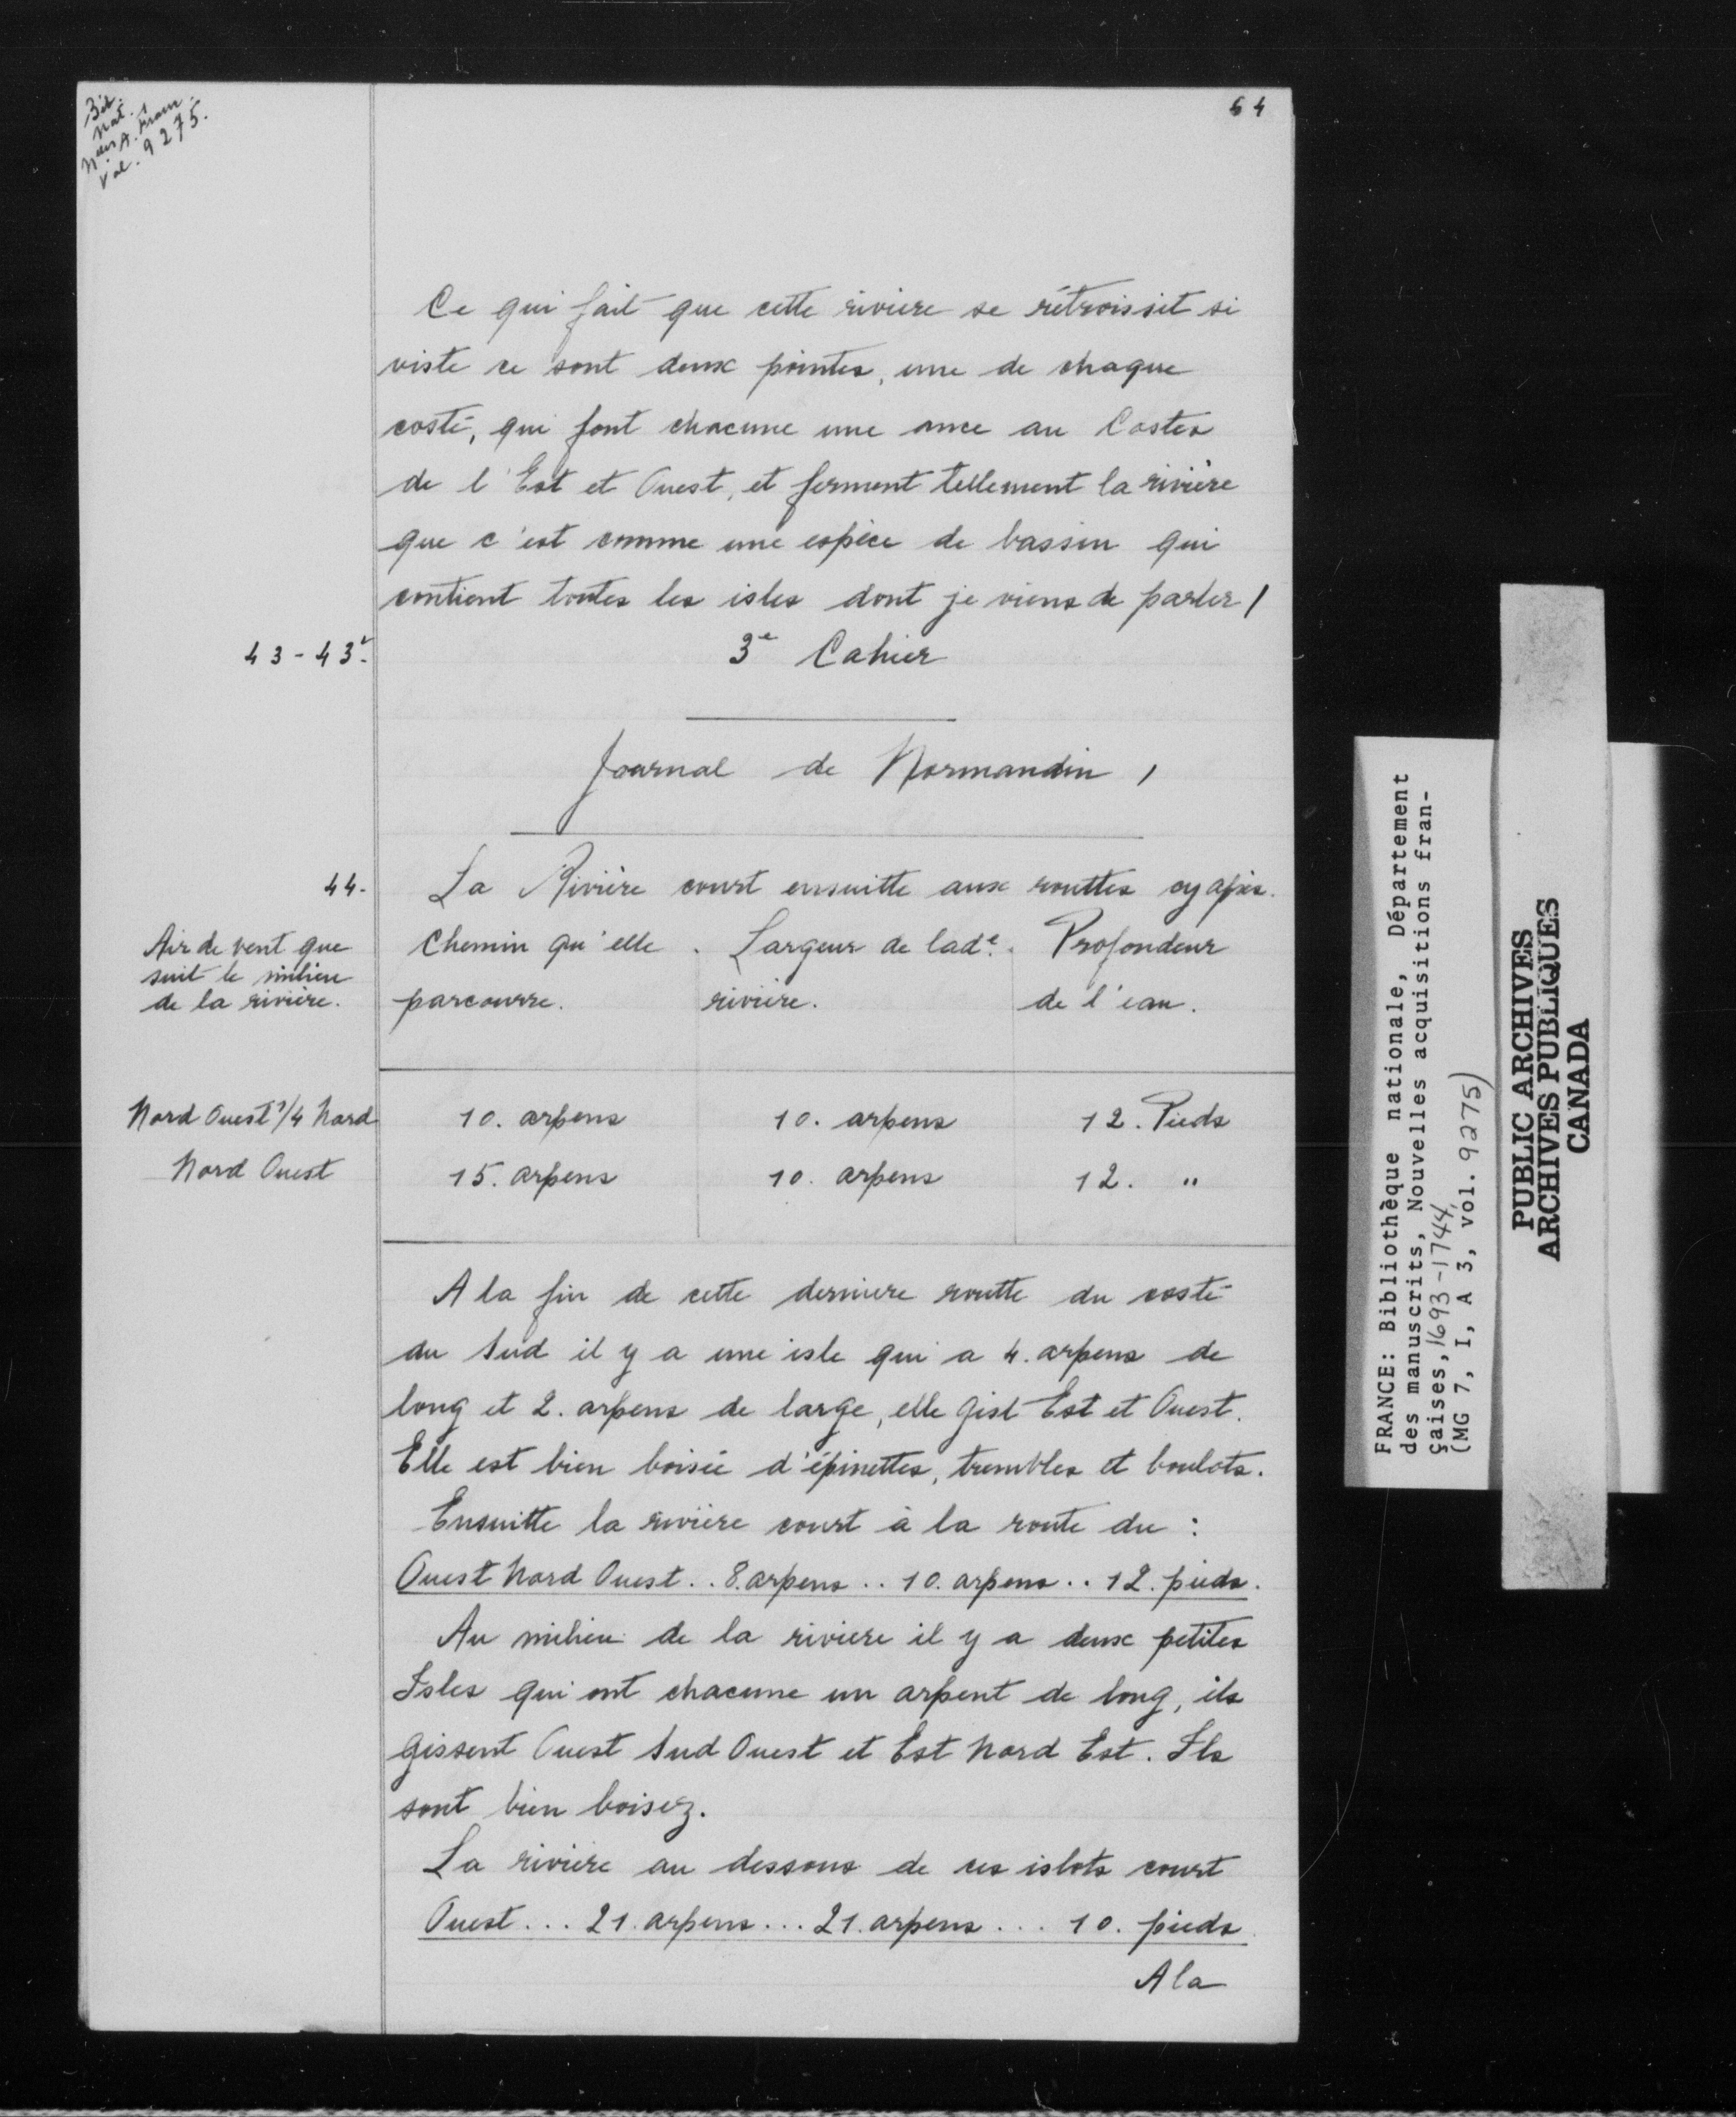 Bib.
Nat.
Nlles A. Fran.
Vol. 9275.
64
Ce qui fait que cette riviere se rétroissit si
viste ce sont deux pointes, une de chaque
costé, qui font chacune une ance au Costes
de l'Est et Ouest, et ferment tellement la rivière
que c'est comme une espèce de bassin qui
contient toutes les isles dont je viens de parler /
43-43v.
3e Cahier
Journal de Normandin /
44.
La Rivière court ensuitte aux routtes cy après.
Air de vent que
suit le milieu
de la rivière.
Chemin qu'elle . Largeur de lade. . Profondeur
parcourre. rivière. de l'eau.
Nord Ouest 1/4 Nord 10. arpens 10. arpens 12. Pieds
Nord Ouest 15. arpens 10. arpens 12. "
A la fin de cette derniere routte du costé
du Sud il y a une isle qui a 4. arpens de
long et 2. arpens de large, elle gist Est et Ouest.
Elle est bien boisée d'épinettes, trembles et boulots.
Ensuitte la rivière court à la route du :
Ouest Nord Ouest .. 8. arpens .. 10. arpens .. 12. pieds.
Au milieu de la riviere il y a deux petites
Isles qui ont chacune un arpent de long, ils
gissent Ouest Sud Ouest et Est Nord Est. Ils
sont bien boisez.
La rivière au dessous de ces islots court
Ouest ... 21. arpens ... 21. arpens ... 10. pieds
A la
FRANCE: Bibliothèque nationale, Département
des manuscrits, Nouvelles acquisitions fran-
çaises, 1693-1744,
(MG 7, I, A 3, vol. 9275)
PUBLIC ARCHIVES
ARCHIVES PUBLIQUES
CANADA